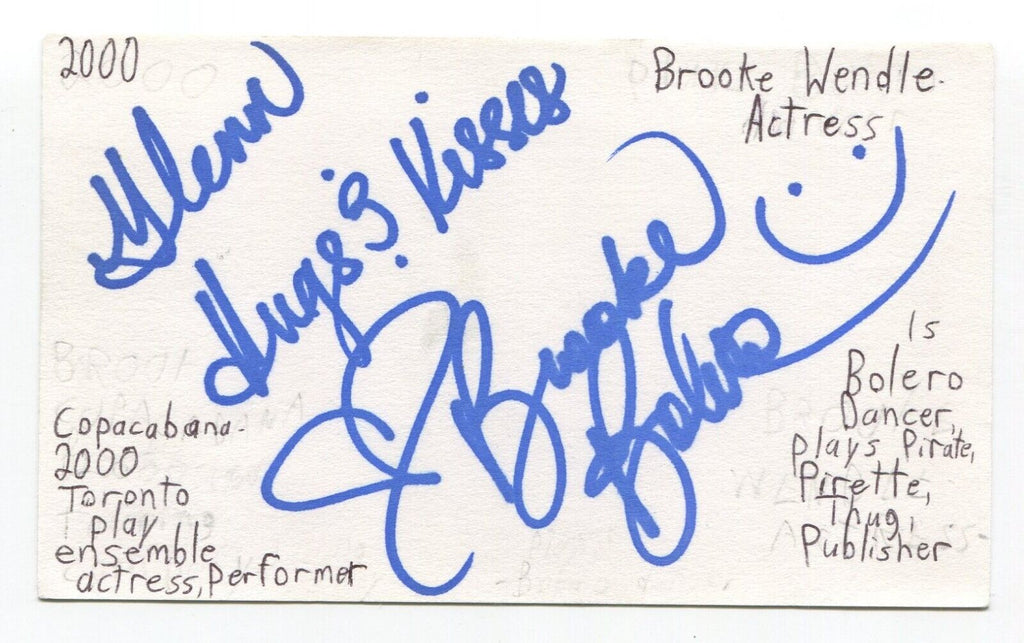 2000
Brooke Wendle.
Actress
Glenn
Hugs & Kisses
Brooke
Is
Bolero
Dancer,
plays Pirate,
Pirette,
Thug,
Publisher
Copacabana-
2000
Toronto
play
ensemble
actress, performer